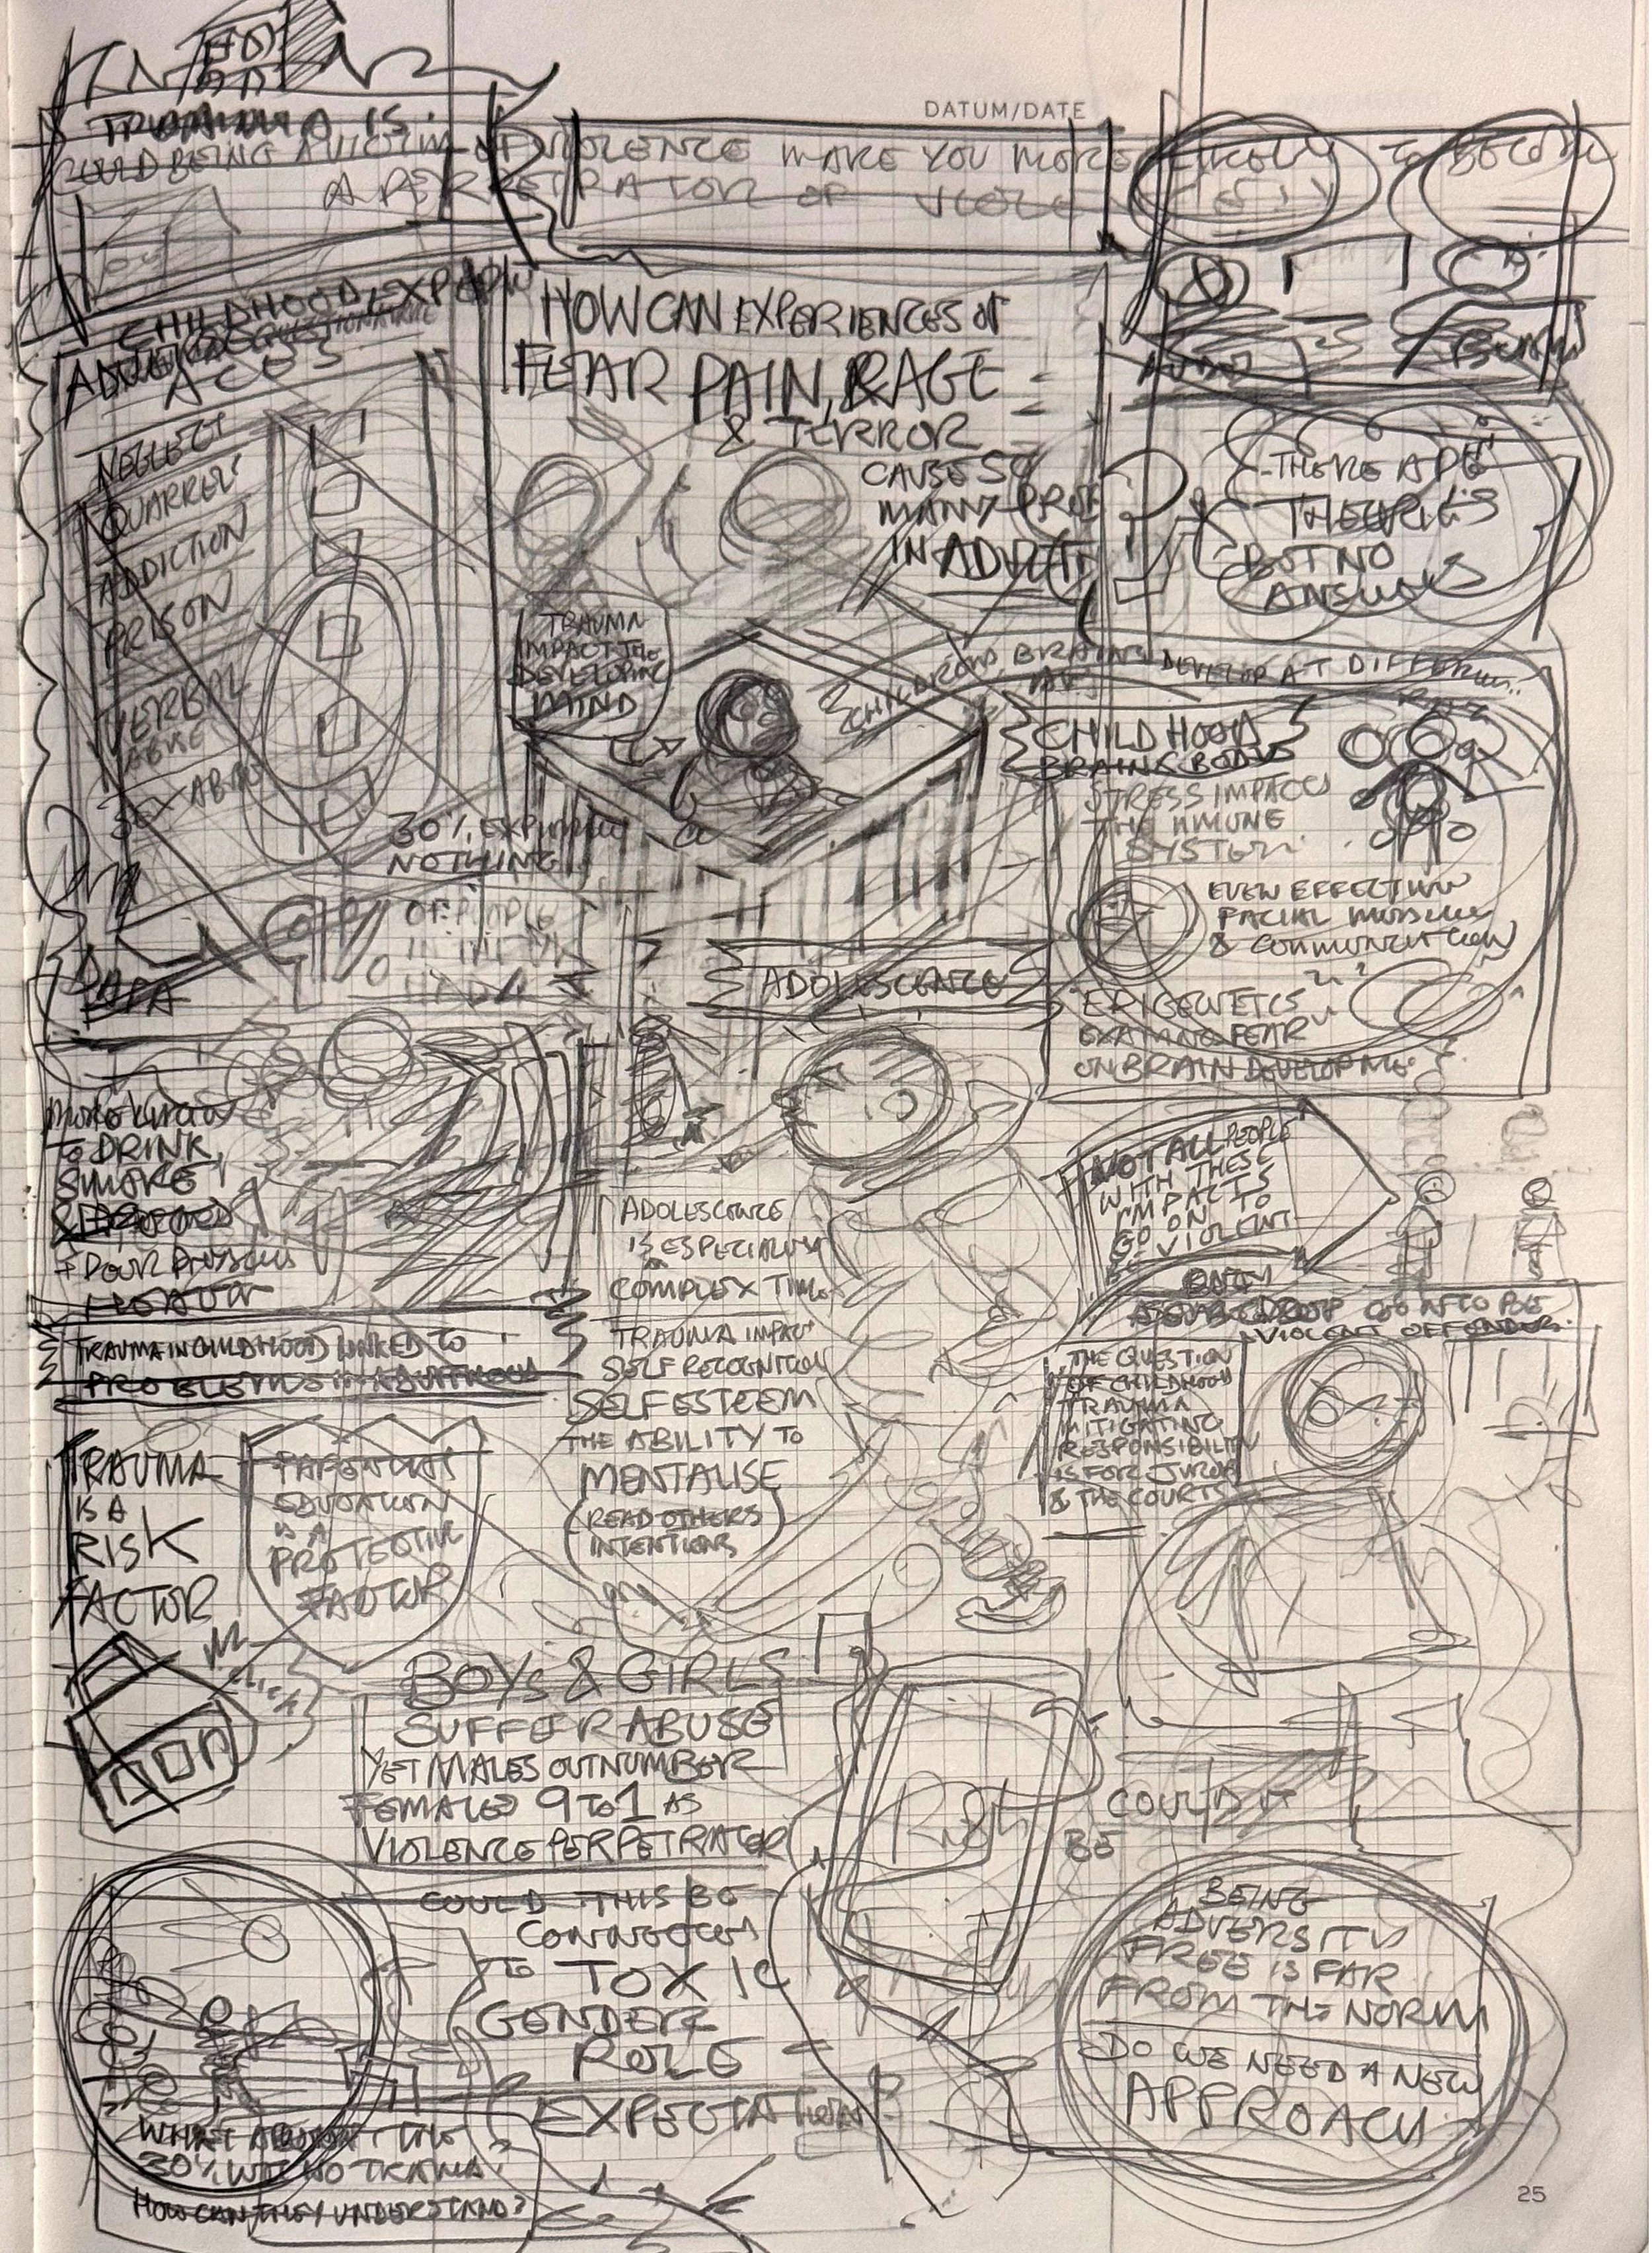 DATUM/DATE
TRAUMA IS
COULD BEING A VICTIM OF VIOLENCE MAKE YOU MORE LIKELY TO BECOME
A PERPETRATOR OF
CHILDHOOD EXPERIENCE
ACES
NEGLECT
QUARREL
ADDICTION
PRISON
VERBAL
ABUSE
SEX ABUSE
30% EXPERIENCE
NOTHING
OF PEOPLE
DATA
HOW CAN EXPERIENCES OF
FEAR PAIN, RAGE
& TERROR
CAUSE SO
MANY PROB
IN ADULT
TRAUMA
IMPACT THE
DEVELOPING
MIND
THERE ARE
THEORIES
BUT NO
ANSWERS
CHILDREN'S BRAINS DEVELOP AT DIFFERENT
CHILDHOOD
BRAINS BODIES
STRESS IMPACTS
THE IMMUNE
SYSTEM
EVEN EFFECTING
FACIAL MUSCLES
& COMMUNICATION
EPIGENETICS
EXAMINE FEAR
ON BRAIN DEVELOPME
ADOLESCENCE
ADOLESCENCE
IS ESPECIALLY
COMPLEX TIME
TRAUMA IMPACT
SELF RECOGNITION
SELF ESTEEM
THE ABILITY TO
MENTALISE
(READ OTHERS
INTENTIONS)
MORE LIKELY
TO DRINK,
SMOKE
+ POOR PHYSICAL
HEALTH
TRAUMA IN CHILDHOOD LINKED TO
PROBLEMS IN ADULTHOOD
TRAUMA
IS A
RISK
FACTOR
PARENTAL
EDUCATION
IS A
PROTECTIVE
FACTOR
NOT ALL PEOPLE
WITH THESE
IMPACTS
GO ON TO
BE VIOLENT
ONLY
VIOLENT OFFENDERS
THE QUESTION
OF CHILDHOOD
TRAUMA
MITIGATING
RESPONSIBILITY
IS FOR JURORS
& THE COURTS
BOYS & GIRLS
SUFFER ABUSE
YET MALES OUTNUMBER
FEMALES 9 TO 1 AS
VIOLENCE PERPETRATOR
COULD THIS BE
CONNECTED
TO TOXIC
GENDER
ROLE
EXPECTATION
COULD IT
BE
BEING
ADVERSITY
FREE IS FAR
FROM THE NORM
DO WE NEED A NEW
APPROACH
WHAT ABOUT THE
30% WITH NO TRAUMA?
HOW CAN THEY UNDERSTAND?
25